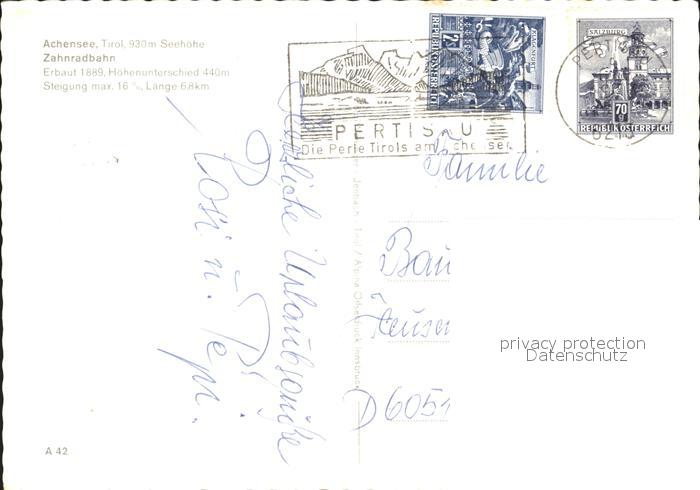 Achensee, Tirol, 930m Seehöhe
Zahnradbahn
Erbaut 1889, Höhenunterschied 440m
Steigung max. 16 %, Länge 6,8km
REPUBLIK ÖSTERREICH
KLAGENFURT
SALZBURG
70 g
REPUBLIK ÖSTERREICH
PERTISAU
Die Perle Tirols am Achensee
Familie
Bau
D 6051
Herzliche Urlaubsgrüße
Rosi u. Pepi.
Jenbach - Tirol / Alpina Offsetdruck Innsbruck
privacy protection
Datenschutz
A 42